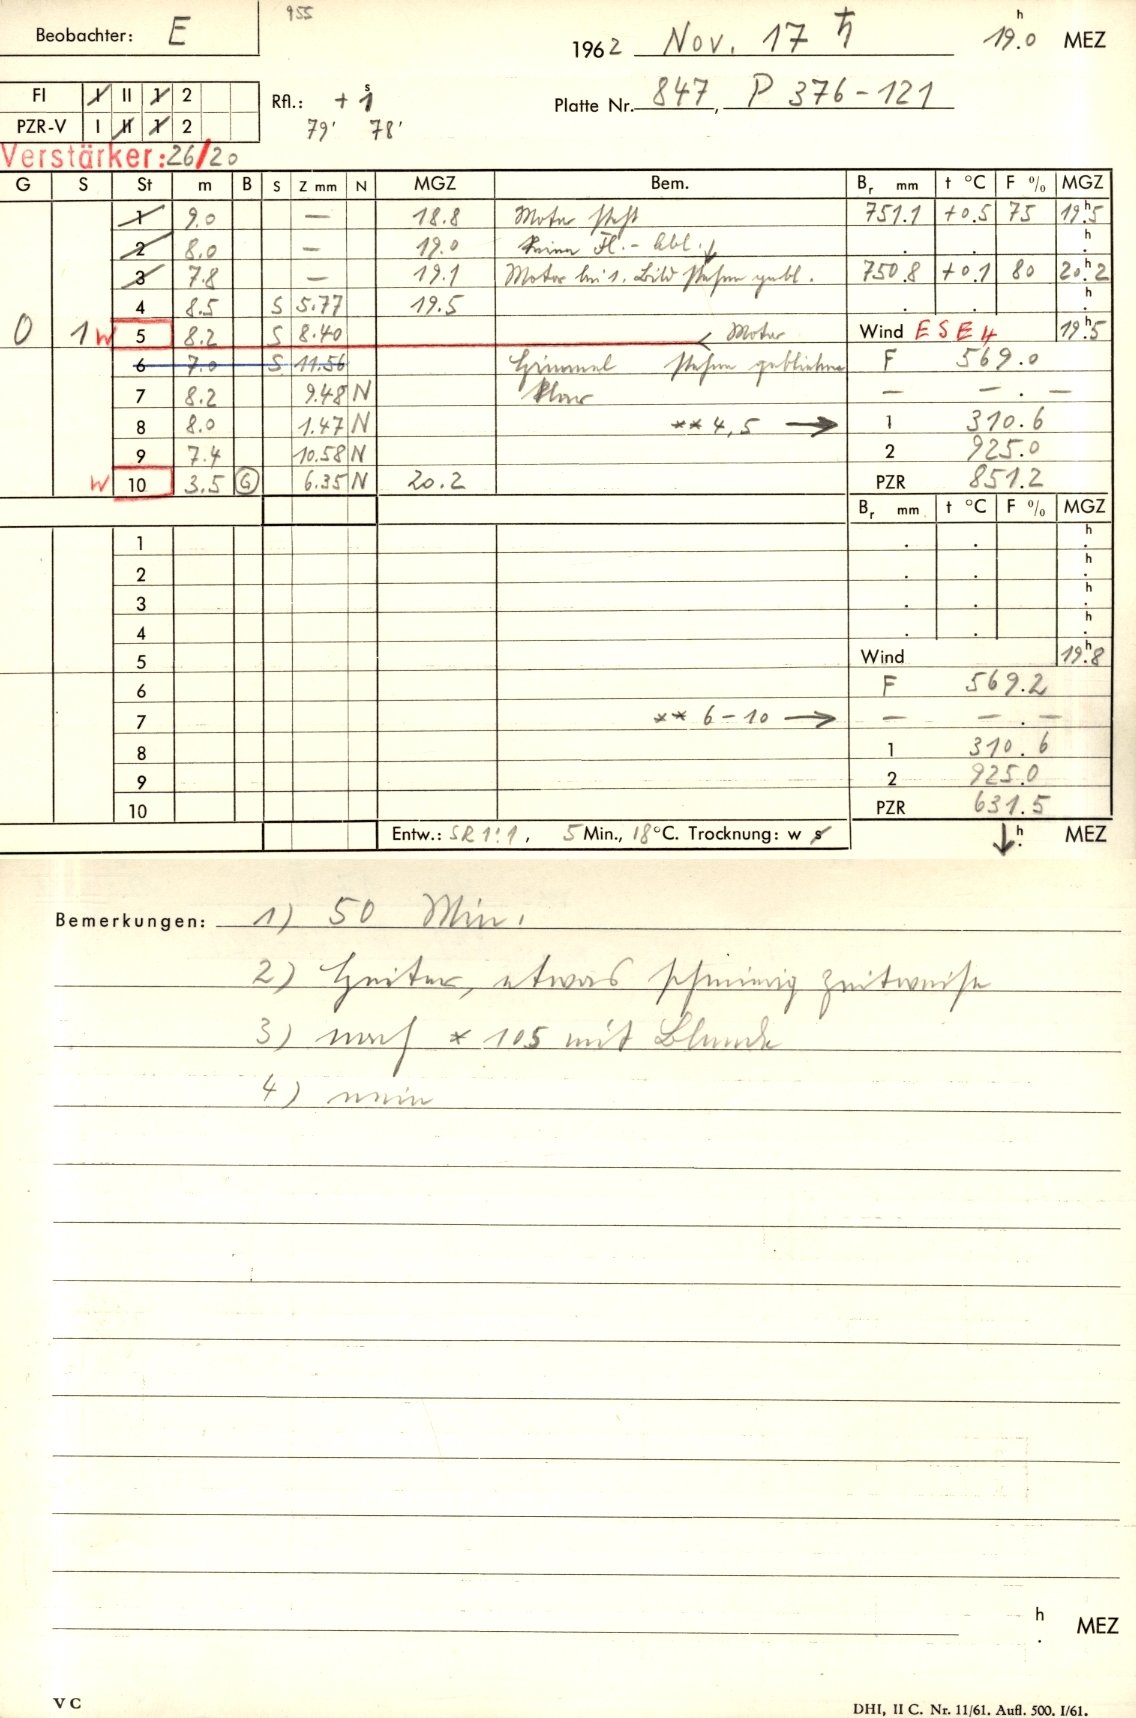 955
Beobachter: E
1962 Nov. 17 ♄ 19.0 h MEZ
FI I II 1 2
Rfl.: + 1 s
Platte Nr. 847, P 376-121
PZR-V I II 1 2
79' 78'
Verstärker: 26/20
G S St m B S Z mm N MGZ Bem. Br mm t °C F % MGZ
1 9.0 — 18.8 Motor steht 751.1 +0.5 75 19h.5
2 8.0 — 19.0 keine Fl.- Abl. . . h.
3 7.8 — 19.1 Motor bei 1. Bild stehen gebl. 750.8 +0.1 80 20h.2
4 8.5 S 5.77 19.5 . . h.
0 1 W 5 8.2 S 8.40 < Motor Wind ESE 4 19h.5
6 7.0 S 11.56 Himmel stehen geblieben F 569.0
7 8.2 9.48 N klar — — . —
8 8.0 1.47 N ** 4,5 → 1 310.6
9 7.4 10.58 N 2 925.0
W 10 3.5 G 6.35 N 20.2 PZR 851.2
Br mm t °C F % MGZ
1 . . h.
2 . . h.
3 . . h.
4 . . h.
5 Wind 19h.8
6 F 569.2
7 ** 6-10 → — — . —
8 1 310.6
9 2 925.0
10 PZR 631.5
Entw.: SR 1:1, 5 Min., 18°C. Trocknung: w s ↓ h. MEZ
Bemerkungen: 1) 50 Min.
2) Heiter, etwas schmierig zeitweise
3) nach * 105 mit Blende
4) nein
h . MEZ
V C
DHI, II C. Nr. 11/61. Aufl. 500. I/61.